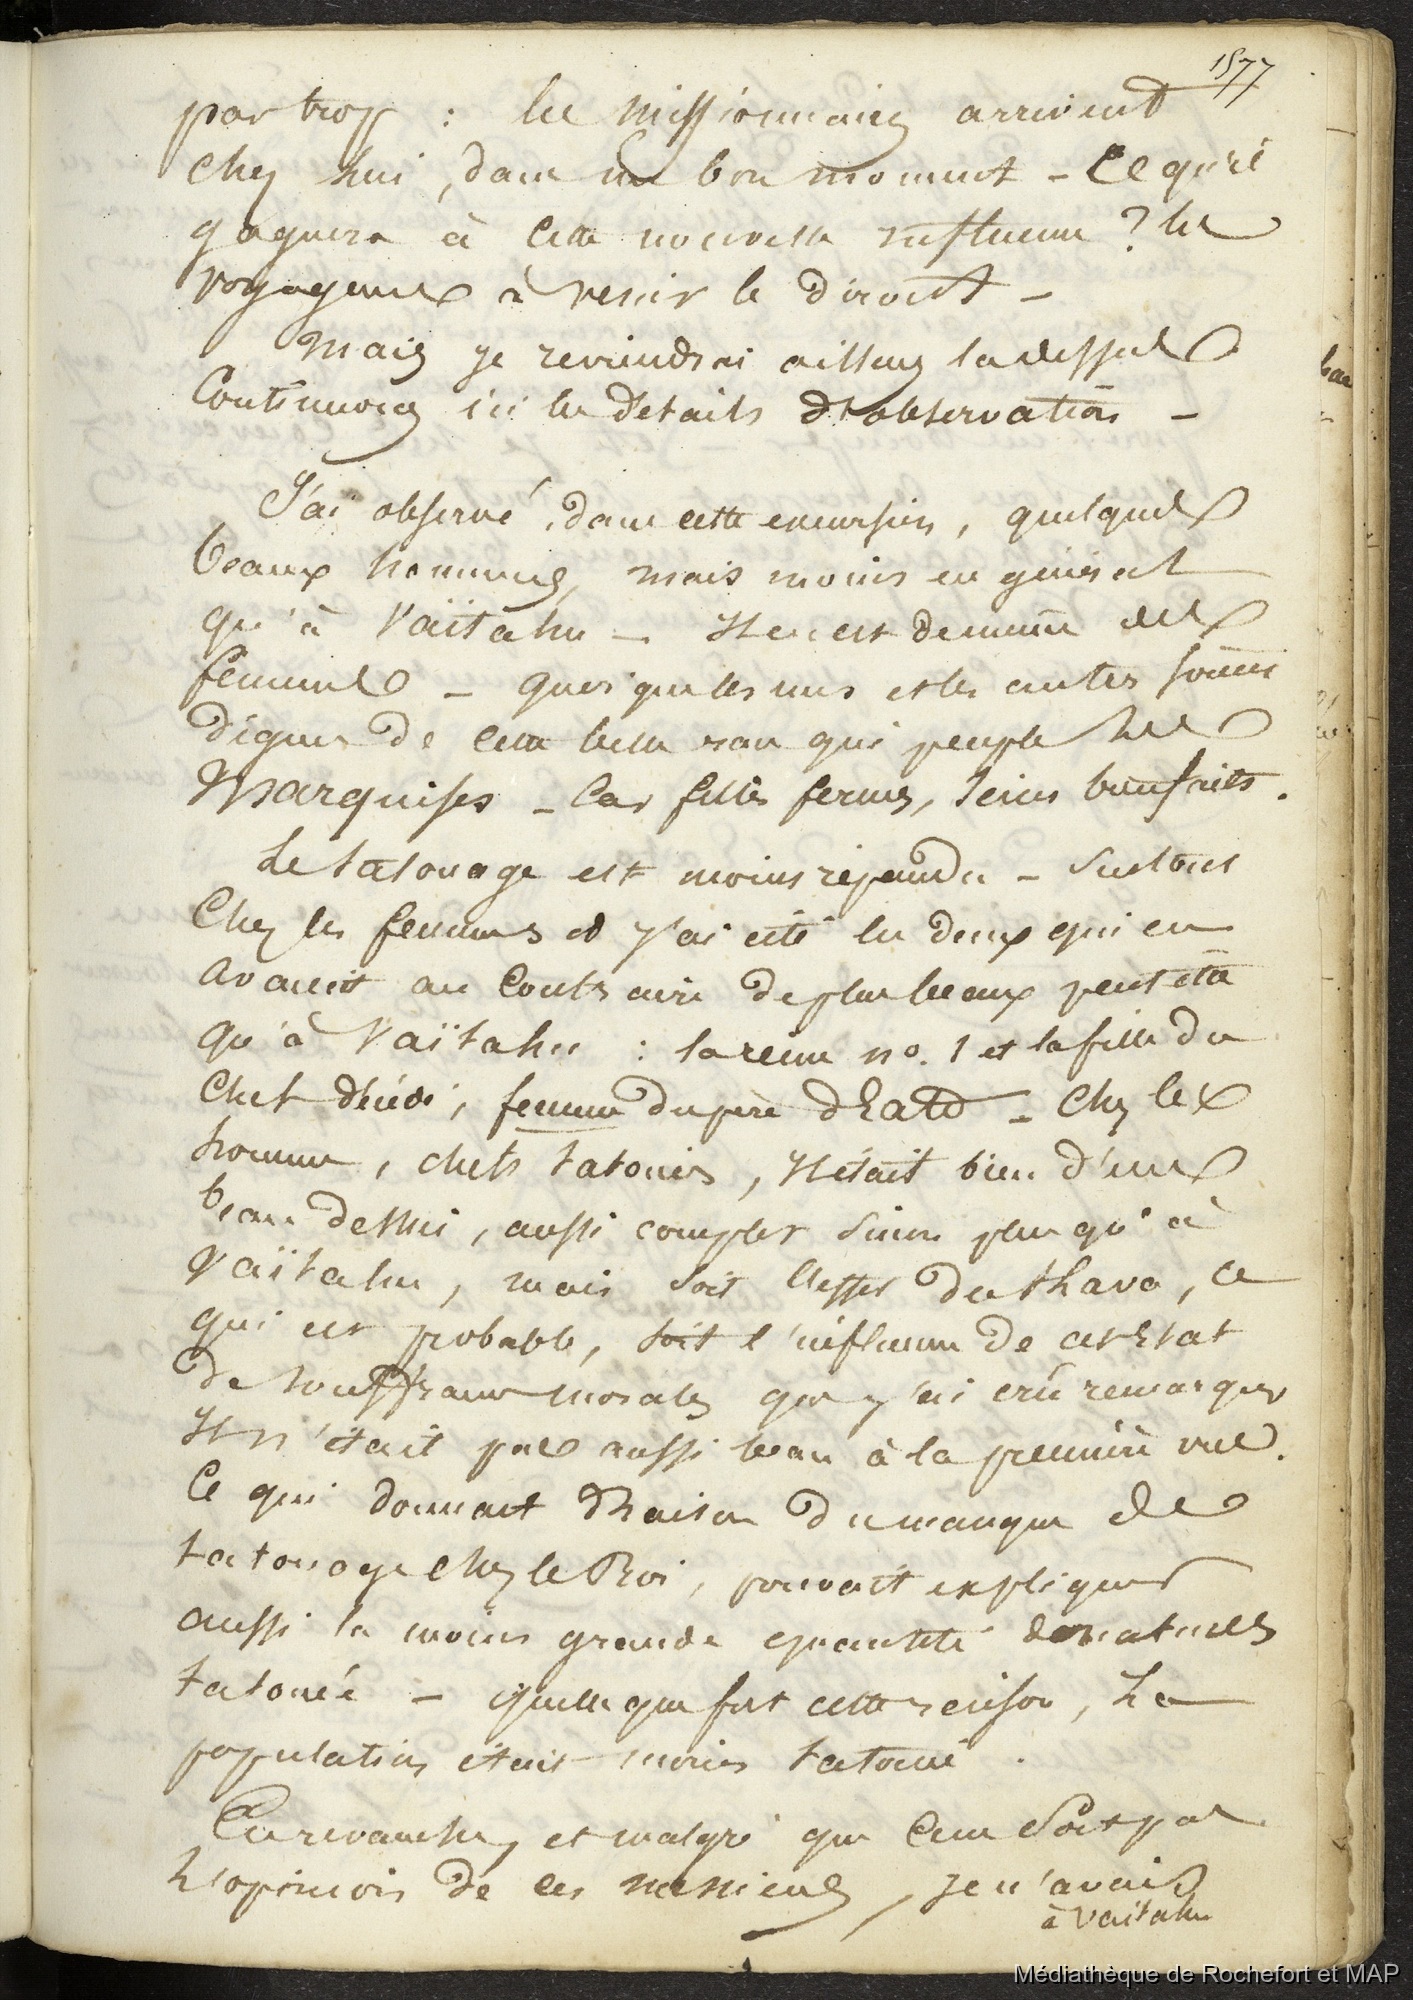 1577
par trop : les missionnaires arrivent
chez lui, dans un bon moment - Ce qu'il
gagnera à cette nouvelle influence ? les
voyageurs à venir le diront -
Mais je reviendrai ailleurs la dessus
Continuons ici les détails d'observations -
J'ai observé, dans cette excursion, quelques
beaux hommes, mais moins en général
qu'à Vaïtahu - Il en est de même des
femmes - quoique les uns et les autres soient
dignes de cette belle race qui peuple les
Marquises - Car filles fermes, seins bien faits.
Le tatouage est moins répandu - Surtout
Chez les femmes et j'ai cité les deux qui en
avaient au Contraire de plus beaux peut être
qu'à Vaïtahu : la reine no. 1 et la fille du
Chef , femme du père - Chez les
hommes, chefs tatoués, Il était bien d'un
beau dessin, aussi complet sinon plus qu'à
Vaïtahu, mais soit l'effet du Kava, ce
qui est probable, soit l'influence de cet état
de souffrance morale que j'ai crû remarquer
Il n'était pas aussi beau à la première vue.
Ce qui donnait raison du manque de
tatouage chez le Roi, pouvait expliquer
aussi la moins grande quantité de naturels
tatoués - quelle que fut cette raison, La
population était moins tatouée.
En revanche, et malgré que ceci Soit pas
L'opinion de ces messieurs, je n'avais
à Vaitahu
Médiathèque de Rochefort et MAP